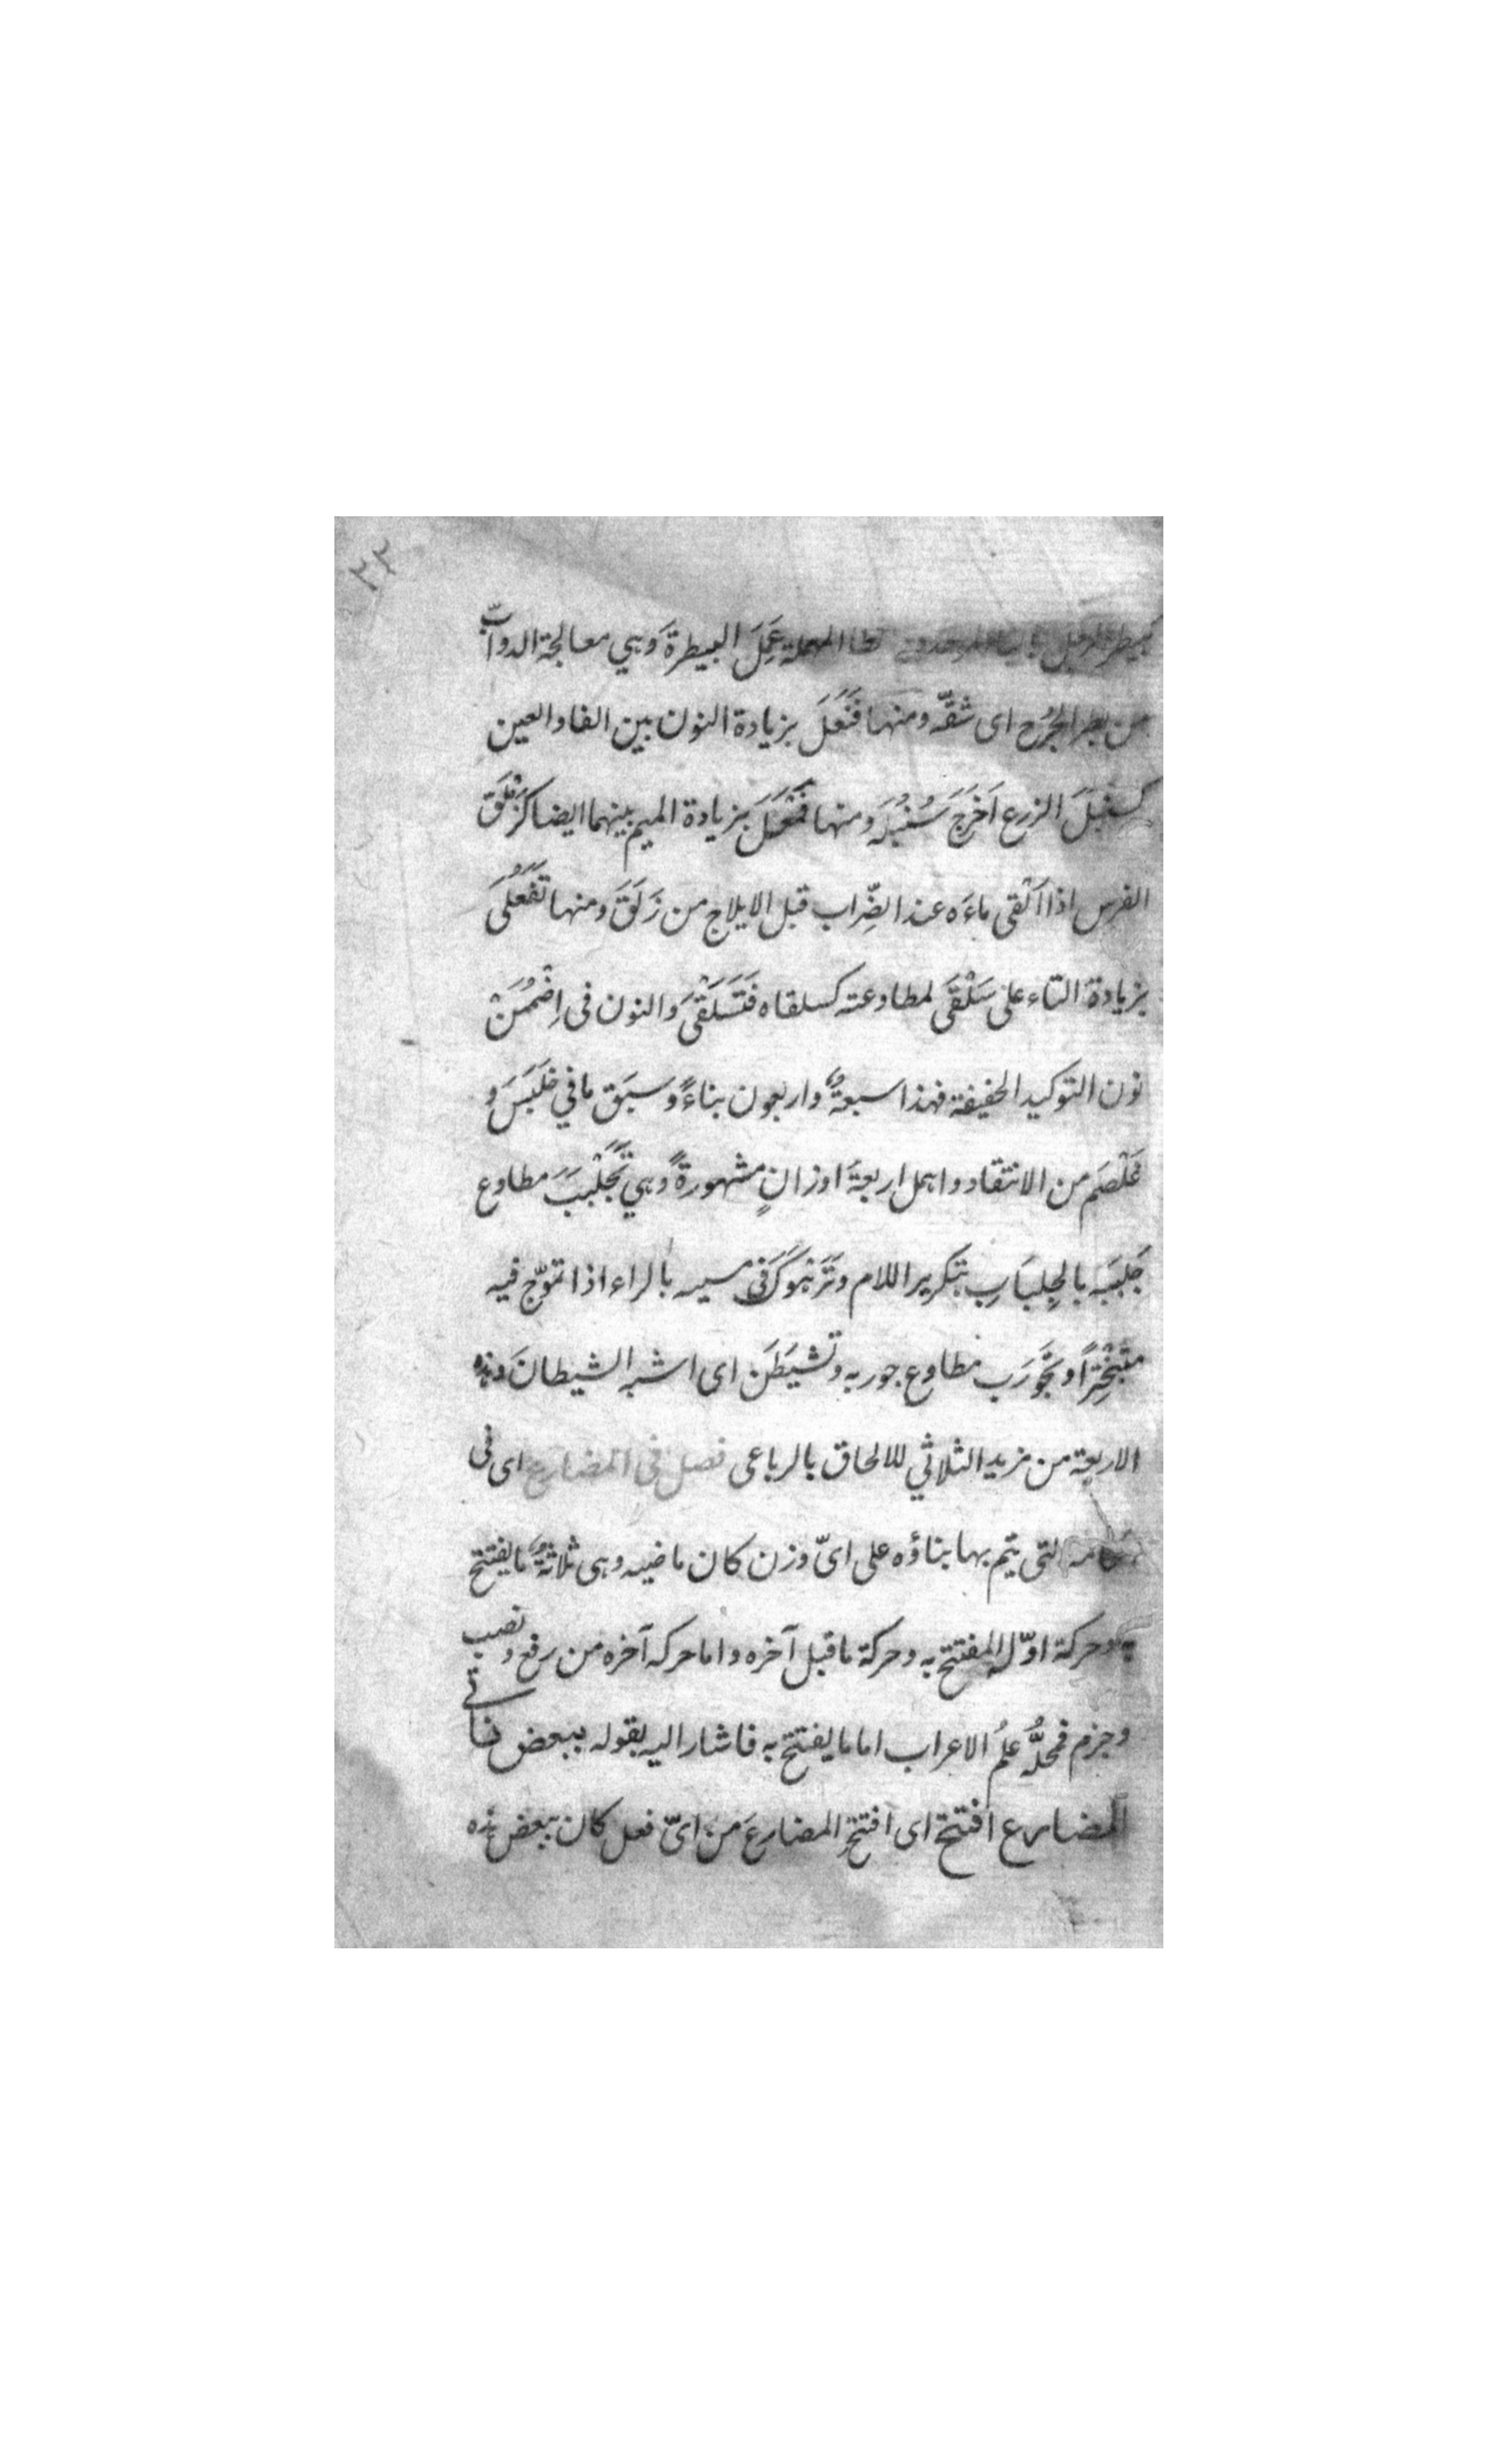 ٢٣
كبيطر الرجل بالباء الموحدة والطاء المهملة عَمِلَ البيطرةَ وهي معالجة الدوابّ
من بطر الجُرح اى شقّه ومنها فَنْعَلَ بزيادة النون بين الفا والعين
كسنبلَ الزرع اَخْرَجَ سُنْبُلَه ومنها فَمْعَلَ بزيادة الميم بينهما ايضا كزَمْلَقَ
الفرس اذا اَلْقى ماءَه عند الضِّراب قبل الايلاج من زَلَقَ ومنها تَفَعْلَى
بزيادة التاء على سَلْقَى لمطاوعته كسلقاه فَتَسَلْقَى والنون فى اِضْمُمَنْ
نون التوكيد الخفيفة فهذا سبعةٌ واربعون بناءً وسَبَق ما في خَلْبَسَ و
غَلْصَم من الانتقاد واهمل اربعةَ اوزانٍ مشهورةً وهي تَجَلْبَبَ مطاوع
جَلْبَبَه بالجِلبَابِ بتكرير اللام وتَرَهْوَكَ فى مسيره بالراء اذا تموّج فيه
متبَخْتِراً وتَجَوْرَب مطاوع جوربه وتَشَيْطَنَ اى اشبه الشيطانَ وهذه
الاربعة من مزيد الثلاثي للالحاق بالرباعى فصل فى المضارع اى فى
احكامه التى يتم بها بناؤه على اىّ وزن كان ماضيه وهى ثلاثةٌ ما يفتتح
به وحركة اوّله المفتتح به وحركة ما قبل آخره واما حركه آخره من رفع ونصب
وجزم فمحلُّه عِلْمُ الاعراب اما ما يفتتح به فاشار اليه بقوله ببعض نأتى
المضارع افتتح اى افتتح المضارعَ من اىّ فعل كان ببعض هذه